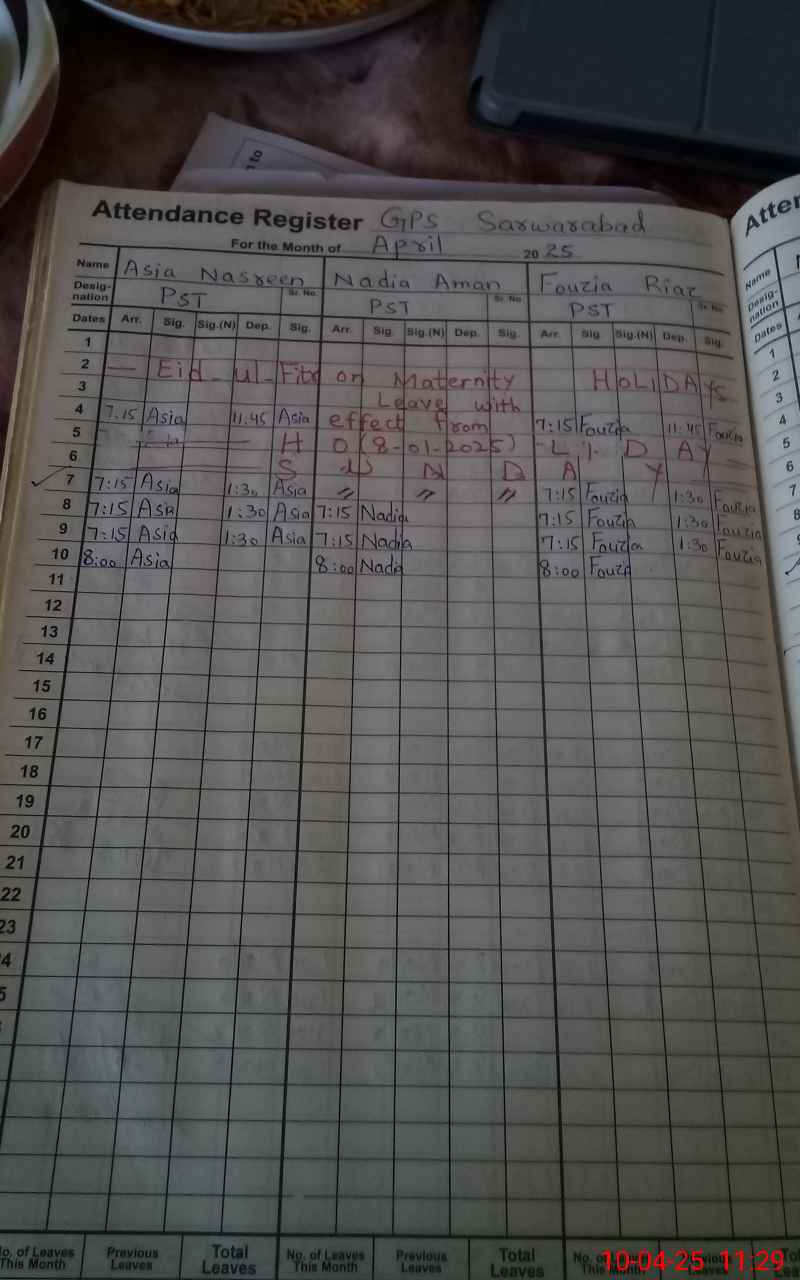 Attendance Register GPS Sarwarabad
For the Month of April 2025
Name Asia Nasreen Nadia Aman Fouzia Riaz
Desig-nation PST Sr. No. PST Sr. No. PST Sr. No.
Dates Arr. Sig. Sig.(N) Dep. Sig. Arr. Sig. Sig.(N) Dep. Sig. Arr. Sig. Sig.(N) Dep. Sig.
1
2 — Eid-ul-Fitr on Maternity HOLIDAYS
3 Leave with
4 7.15 Asia 11.45 Asia effect from 7:15 Fouzia 11:45 Fouzia
5 H O (8-01-2025) L I D A Y
6 S U N D A Y
7 7:15 Asia 1:30 Asia 〃 〃 〃 7:15 Fouzia 1:30 Fouzia
8 7:15 Asia 1:30 Asia 7:15 Nadia 7:15 Fouzia 1:30 Fouzia
9 7:15 Asia 1:30 Asia 7:15 Nadia 7:15 Fouzia 1:30 Fouzia
10 8:00 Asia 8:00 Nadia 8:00 Fouzia
11
12
13
14
15
16
17
18
19
20
21
22
23
No. of Leaves This Month Previous Leaves Total Leaves No. of Leaves This Month Previous Leaves Total Leaves No. of Leaves This Month Previous Leaves
10-04-25 11:29
Atten
Name
Desig-nation
Dates
1
2
3
4
5
6
7
8